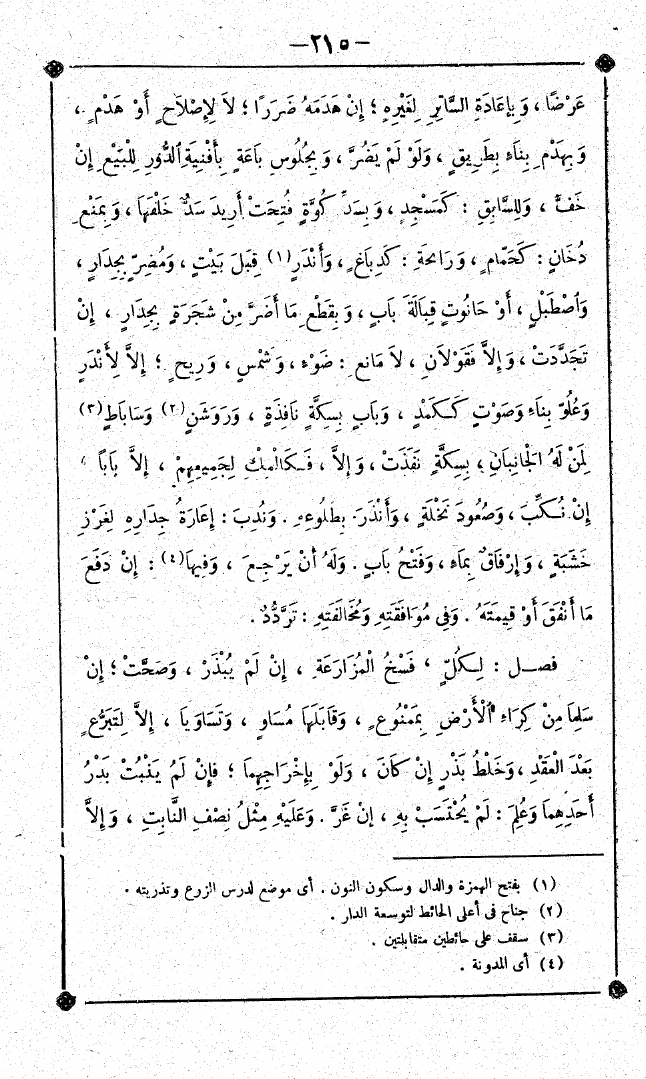 —٢١٥—
عَرْضًا ، وَبِإِعَادَةِ السَّاتِرِ لِغَيْرِهِ ؛ إِنْ هَدَمَهُ ضَرَرًا ؛ لاَ لِإِصْلاَحٍ أَوْ هَدْمٍ ،
وَبِهَدْمِ بِنَاءٍ بِطَرِيقٍ ، وَلَوْ لَمْ يَضُرَّ ، وَبِجُلُوسِ بَاعَةٍ بِأَفْنِيَةِ الدُّورِ لِلْبَيْعِ إِنْ
خَفَّ ، وَلِلسَّابِقِ : كَمَسْجِدٍ ، وَبِسَدِّ كُوَّةٍ فُتِحَتْ أُرِيدَ سَدُّ خَلْفَهَا ، وَبِمَنْعِ
دُخَانٍ : كَحَمَّامٍ ، وَرَائِحَةٍ : كَدِبَاغٍ ، وَأَنْدَرٍ (١) قِبَلَ بَيْتٍ ، وَمُضِرٍّ بِجِدَارٍ ،
وَاصْطَبْلٍ ، أَوْ حَانُوتٍ قِبَالَةَ بَابٍ ، وَبِقَطْعِ مَا أَضَرَّ مِنْ شَجَرَةٍ بِجِدَارٍ ، إِنْ
تَجَدَّدَتْ ، وَإِلاَّ فَقَوْلاَنِ ، لاَ مَانِعِ : ضَوْءٍ ، وَشَمْسٍ ، وَرِيحٍ ؛ إِلاَّ لِأَنْدَرٍ
وَعُلُوِّ بِنَاءٍ وَصَوْتٍ كَكَمْدٍ ، وَبَابٍ بِسِكَّةٍ نَافِذَةٍ ، وَرَوْشَنٍ (٢) وَسَابَاطٍ (٣)
لِمَنْ لَهُ الْجَانِبَانِ ؛ بِسِكَّةٍ نَفَذَتْ ، وَإِلاَّ ، فَكَالْمِلْكِ لِجَمِيعِهِمْ ، إِلاَّ بَابًا
إِنْ نُكِّبَ ، وَصُعُودَ نَخْلَةٍ ، وَأَنْذَرَ بِطُلُوعِهِ . وَنُدِبَ : إِعَارَةُ جِدَارِهِ لِغَرْزِ
خَشَبَةٍ ، وَإِرْفَاقٌ بِمَاءٍ ، وَفَتْحُ بَابٍ . وَلَهُ أَنْ يَرْجِعَ ، وَفِيهَا (٤) : إِنْ دَفَعَ
مَا أَنْفَقَ أَوْ قِيمَتَهُ . وَفِي مُوَافَقَتِهِ وَمُخَالَفَتِهِ : تَرَدُّدٌ .
فصل : لِكُلٍّ ، فَسْخُ الْمُزَارَعَةِ ، إِنْ لَمْ يُبْذَرْ ، وَصَحَّتْ ؛ إِنْ
سَلِمَا مِنْ كِرَاءِ الْأَرْضِ بِمَمْنُوعٍ ، وَقَابَلَهَا مُسَاوٍ ، وَتَسَاوَيَا ، إِلاَّ لِتَبَرُّعٍ
بَعْدَ الْعَقْدِ ، وَخَلْطُ بَذْرٍ إِنْ كَانَ ، وَلَوْ بِإِخْرَاجِهِمَا ؛ فَإِنْ لَمْ يَنْبُتْ بَذْرُ
أَحَدِهِمَا وَعُلِمَ : لَمْ يُحْتَسَبْ بِهِ ، إِنْ غَرَّ . وَعَلَيْهِ مِثْلُ نِصْفِ النَّابِتِ ، وَإِلاَّ
(١) بفتح الهمزة والدال وسكون النون . أى موضع لدرس الزرع وتذريته .
(٢) جناح فى أعلى الحائط لتوسعة الدار .
(٣) سقف على حائطين متقابلتين .
(٤) أى المدونة .